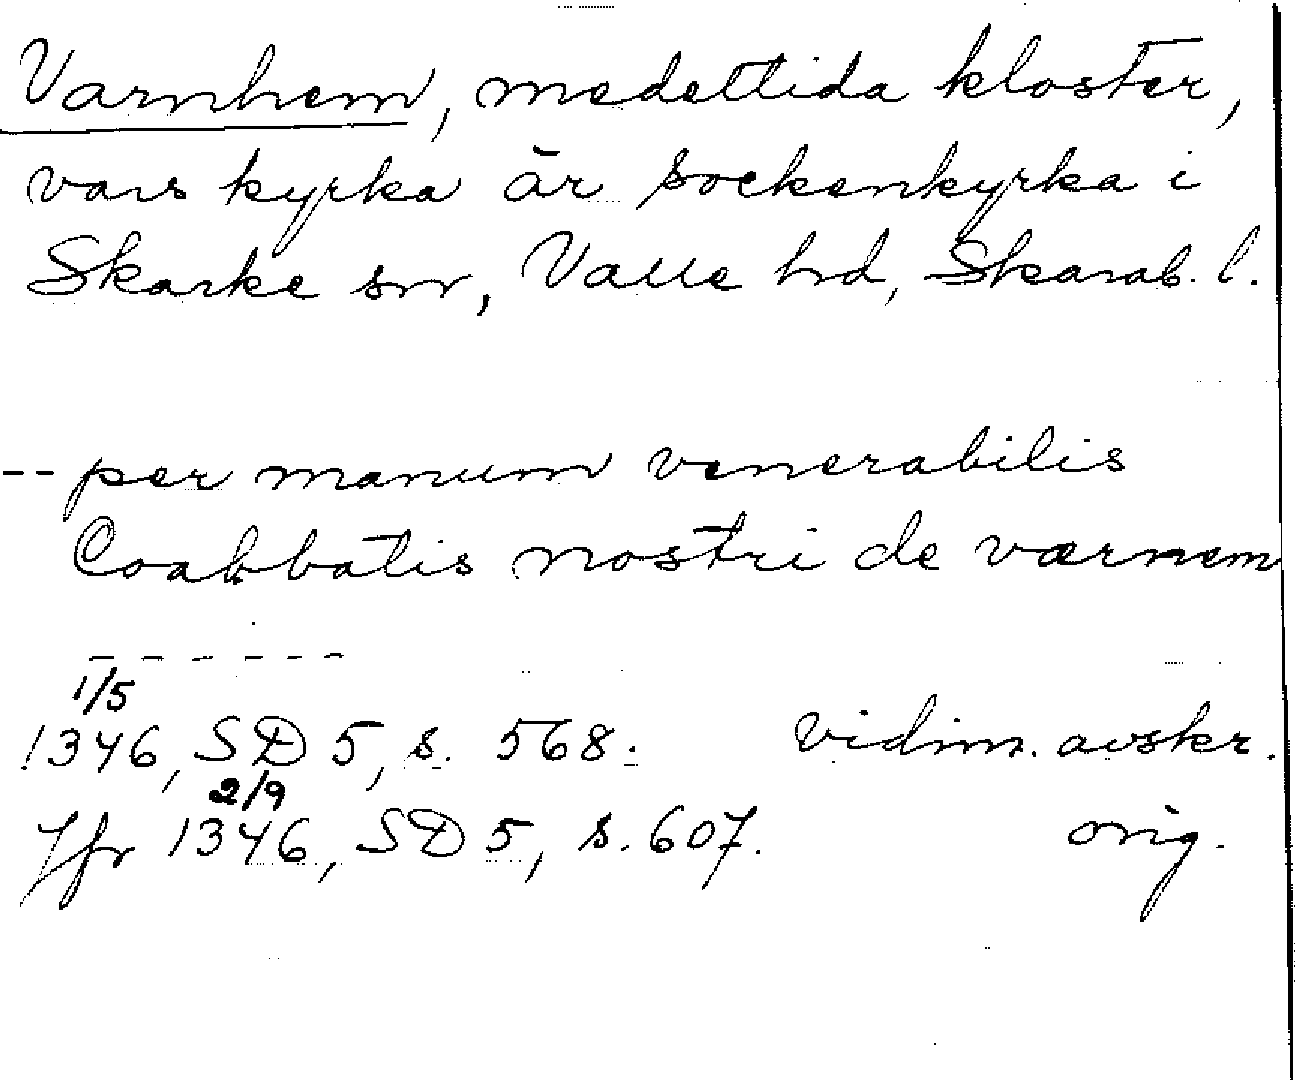 Varnhem, medeltida kloster,
vars kyrka är sockenkyrka i
Skarke sn, Valle hd, Skarab. l.
-- per manum venerabilis
Coabbatis nostri deværnem
- - - - - -
1/5
1346, SD 5, s. 568. vidim. avskr.
2/9
Jfr 1346, SD 5, s. 607. orig.